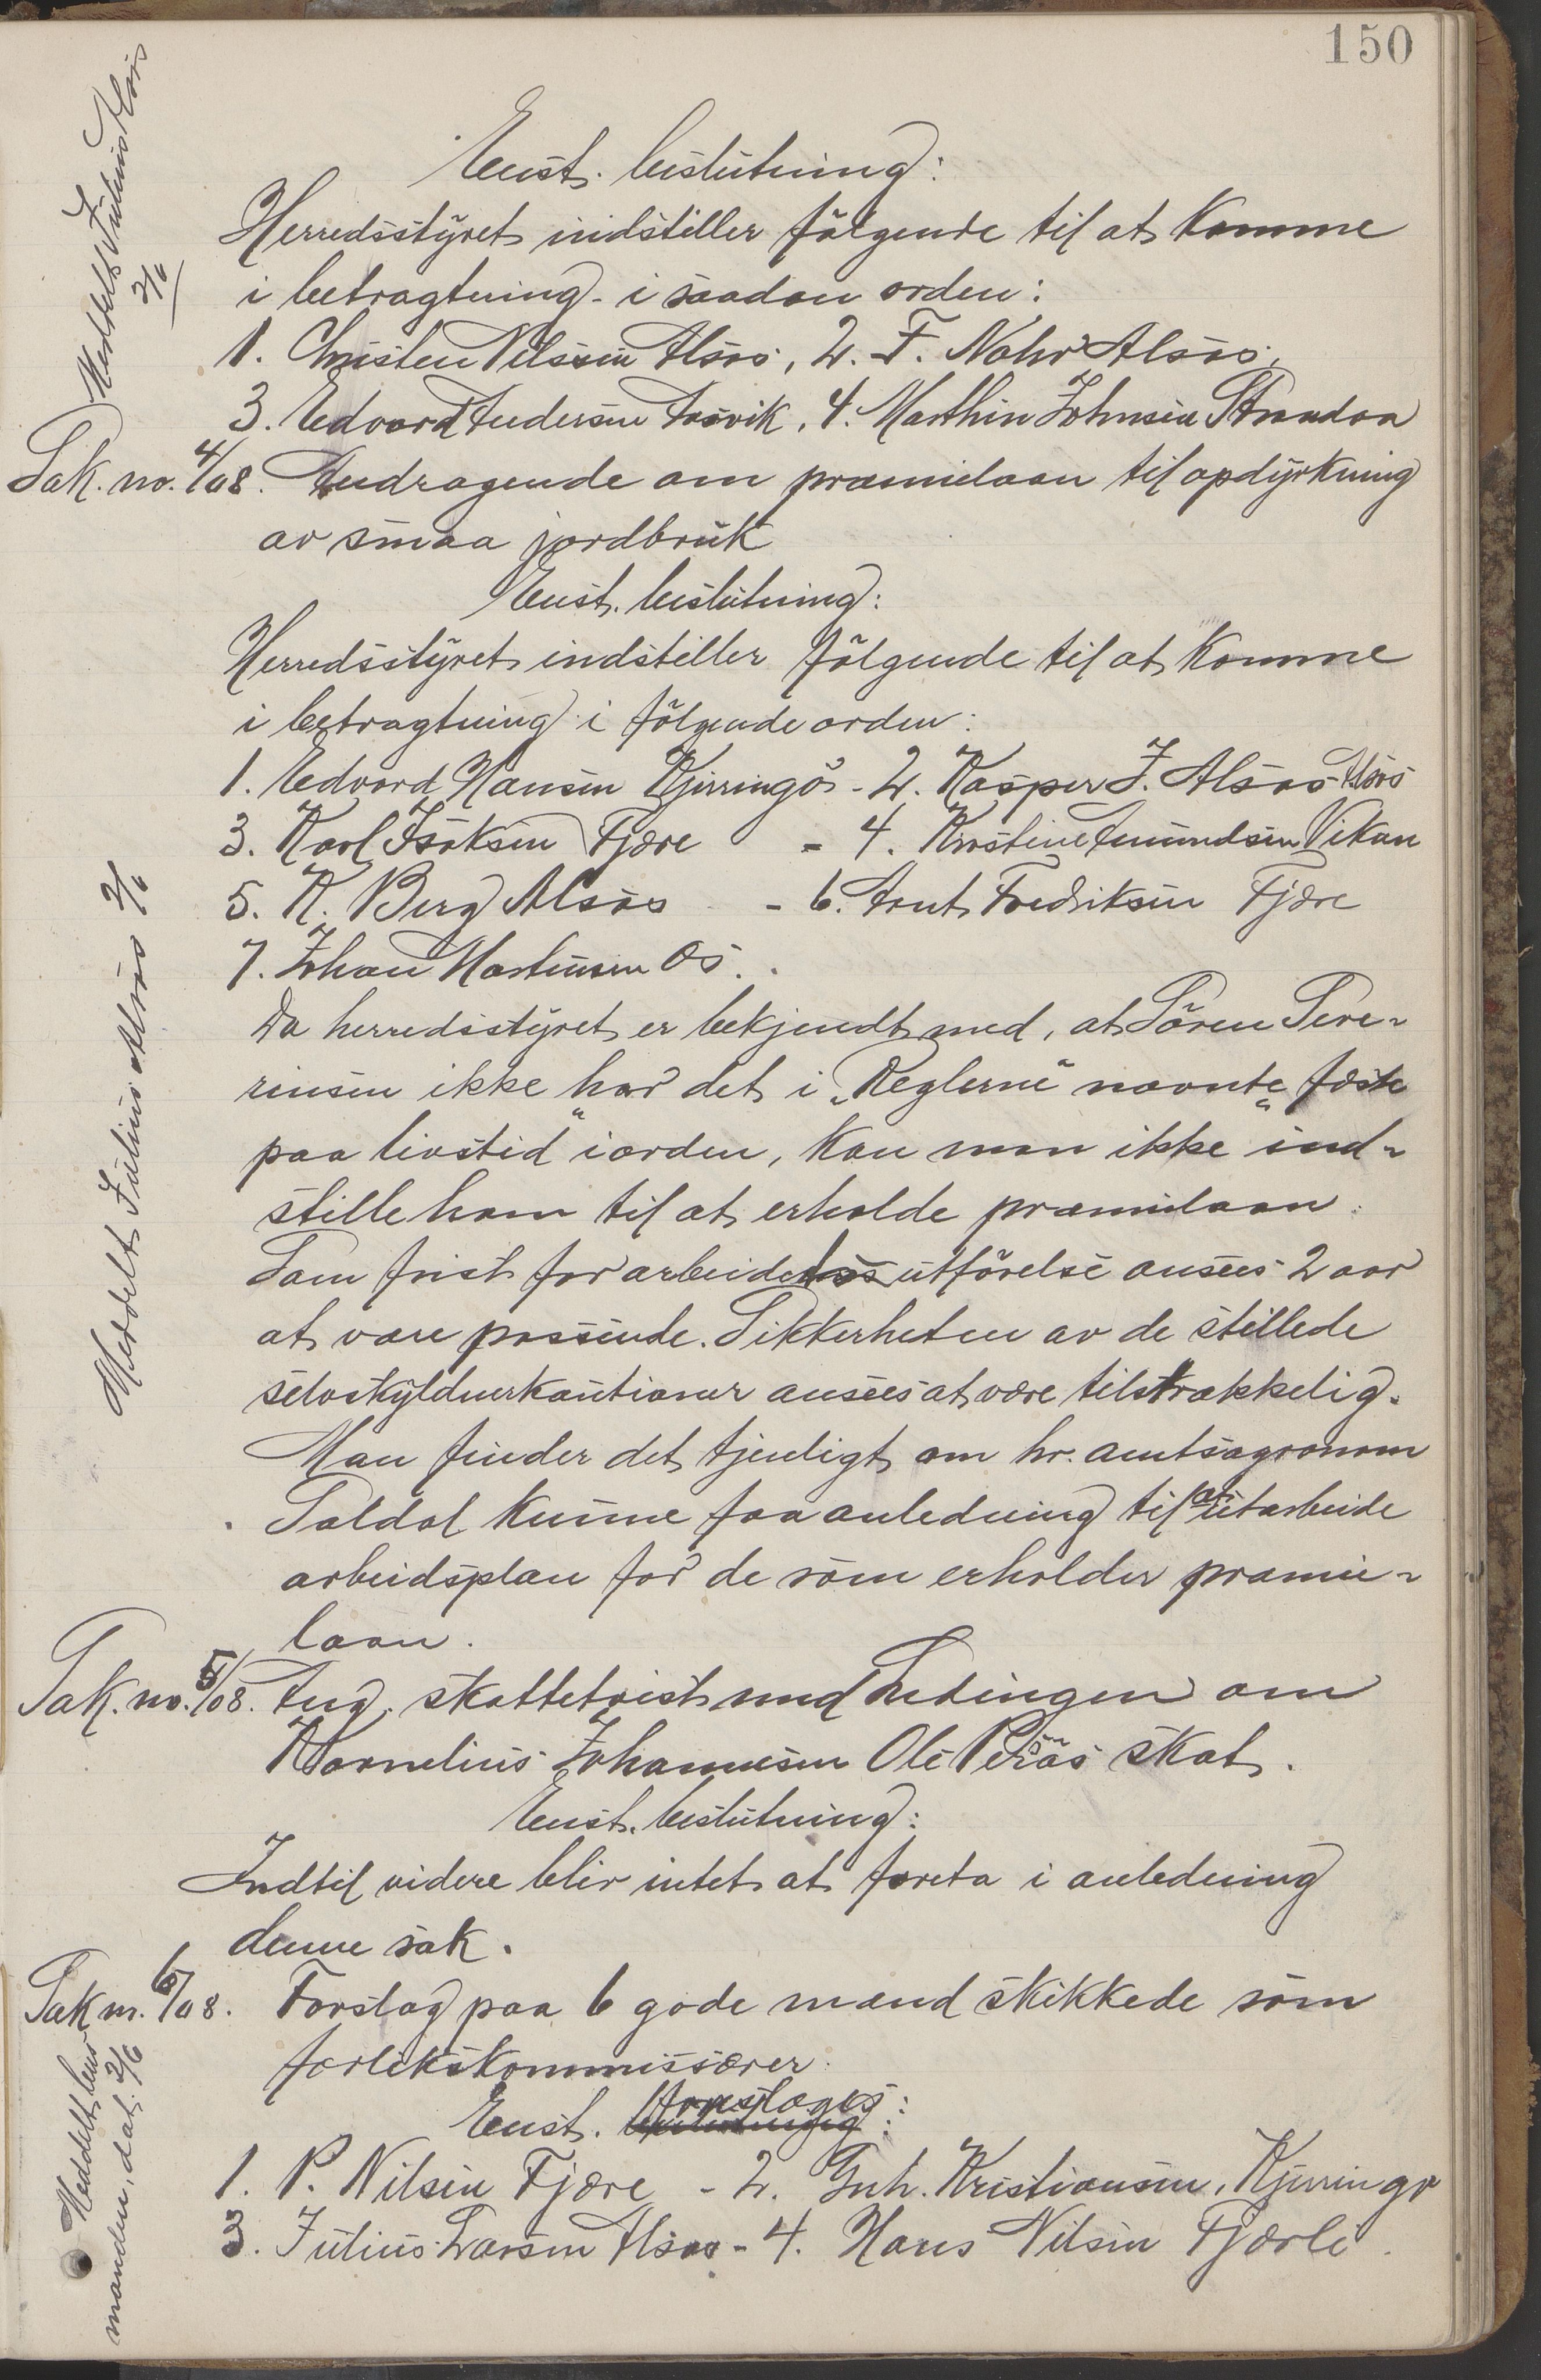 150
Enst. beslutning:
Herredsstyret indstiller følgende til at komme
i betragtning i saadan orden:
1. Christen Nilssen Alsøs, 2. F. Nohr Alsøs,
3. Edvard Andersen Aasvik, 4. Marthin Johnsen Strandaa
Sak. no. 4/08. Andragende om præmielaan til opdyrkning
av smaa jordbruk
Enst. beslutning:
Herredsstyret indstiller følgende til at komme
i betragtning i følgende orden:
1. Edvard Hansen Kjerringø - 2. Kasper J. Alsøs Alsøs
3. Karl Isaksen Fjære - 4. Kirstine Amundsen Vikan
5. K. Berg Alsøs - 6. Arnt Fredriksen Fjære
7. Johan Martinsen Os.
Da herredsstyret er bekjendt med, at Søren Seve-
rinsen ikke har det i „Reglerne" nævnte „fæste
paa livstid" i orden, kan man ikke ind-
stille ham til at erholde præmielaan.
Som frist for arbeidets utførelse ansees 2 aar
at være passende. Sikkerheten av de stillede
selvskyldnerkautioner ansees at være tilstrækkelig.
Man finder det tjenligt om hr. amtsagronom
Soldal kunne faa anledning til at utarbeide
arbeidsplan for de som erholder præmie-
laan.
Sak. no. 5/08. Ang. skattetvist med Lødingen om
Kornelius Johannesen Ole Persøs skat.
Enst. beslutning:
Indtil videre blir intet at foreta i anledning
denne sak.
Sak nr. 6/08. Forslag paa 6 gode mænd skikkede som
forlikskommissærer.
Enst. foreslages:
1. P. Nilsen Fjære - 2. Inh. Kristiansen, Kjerringø
3. Julius Larsen Alsøs - 4. Hans Nilsen Fjærli
Meddelt Julius Alsøs
2/6
Meddelt Julius Alsøs 2/6
Meddelt lens
manden, dat. 2/6